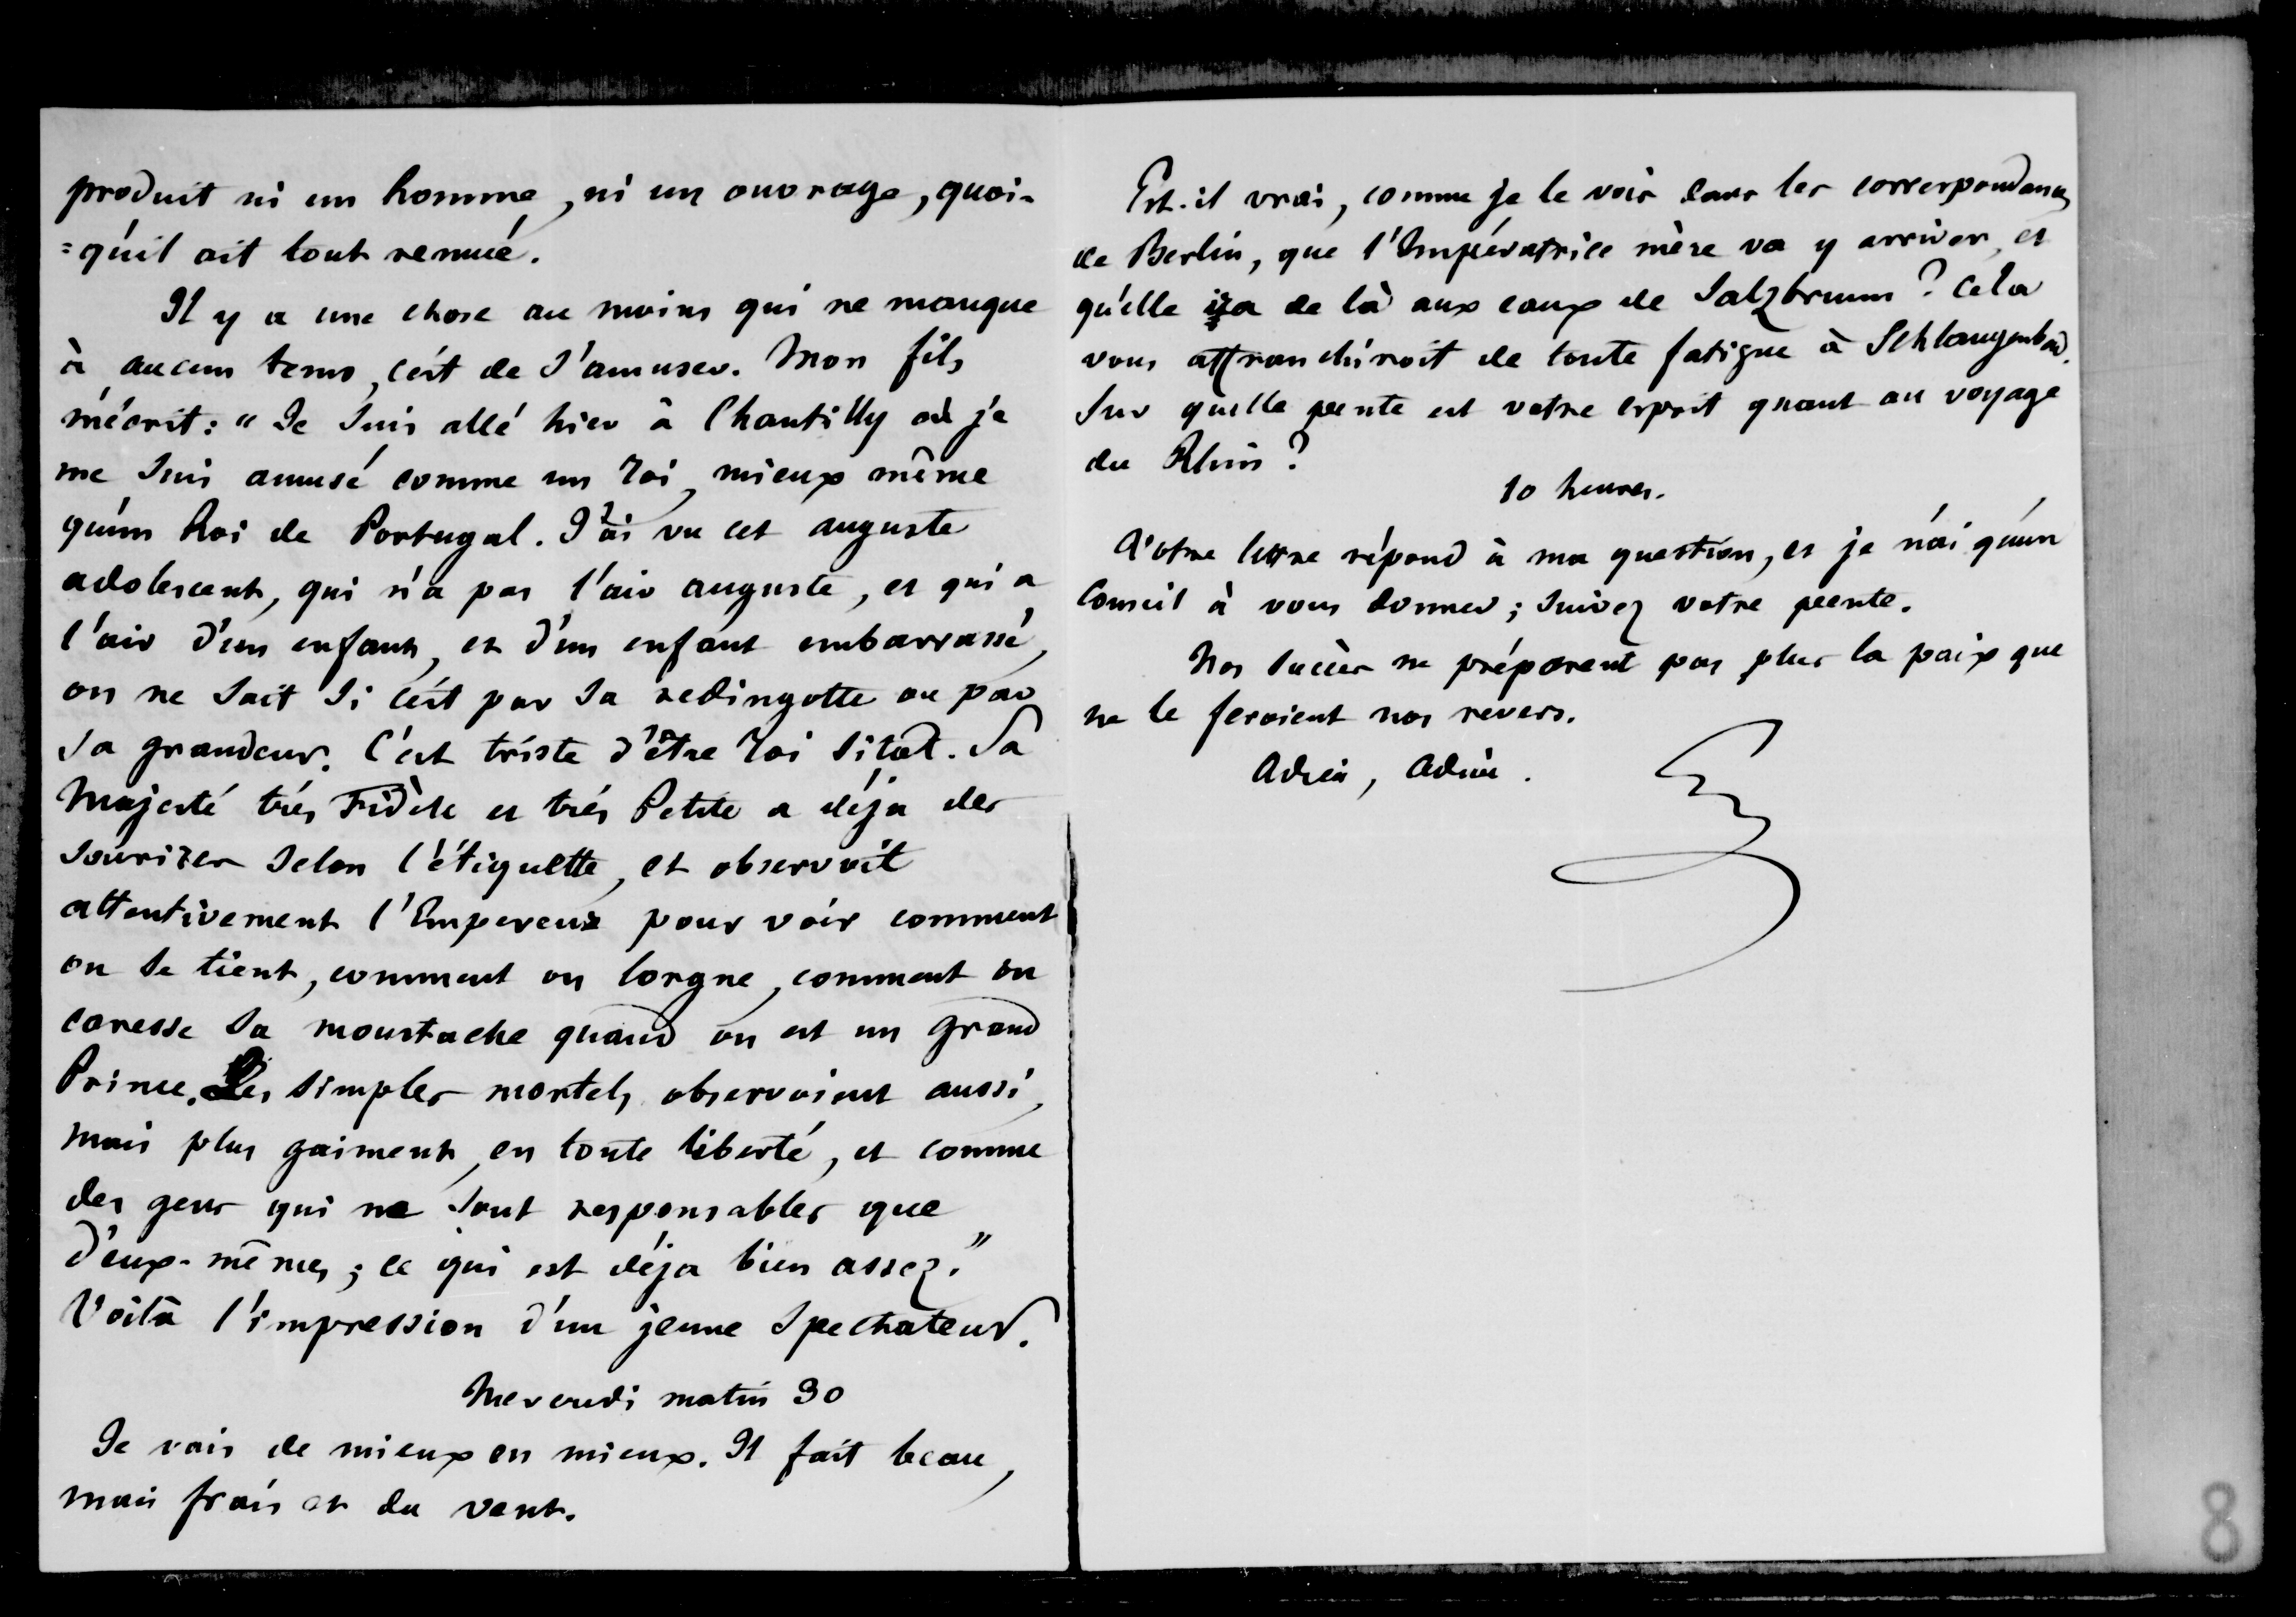 produit ni un homme, ni un ouvrage, quoi-
=qu'il ait tout remué.
Il y a une chose au moins qui ne manque
à aucun tems, c'est de s'amuser. Mon fils
m'écrit : " Je suis allé hier à Chantilly où je
me suis amusé comme un roi, mieux même
qu'un Roi de Portugal. J'ai vu cet auguste
adolescent, qui n'a pas l'air auguste, et qui a
l'air d'un enfant, et d'un enfant embarrassé,
on ne sait si c'est par sa redingotte ou par
sa grandeur. C'est triste d'être roi sitôt. Sa
Majesté très Fidèle et très Petite a déja des
sourires selon l'étiquette, et observoit
attentivement l'Empereur pour voir comment
on se tient, comment on lorgne, comment on
caresse sa moustache quand on est un grand
Prince. Les simples mortels observoient aussi,
mais plus gaiment, en toute liberté, et comme
des gens qui ne sont responsables que
d'eux-mêmes ; ce qui est déja bien assez."
Voilà l'impression d'un jeune spectateur.
Mercredi matin 30
Je vais de mieux en mieux. Il fait beau,
mais frais et du vent.
Est-il vrai, comme je le vois dans les correspondances
de Berlin, que l'Impératrice mère va y arriver, et
qu'elle ira de là aux eaux de Salzbrunn ? Cela
vous affranchiroit de toute fatigue à Schlangenbad.
Sur quelle pente est votre esprit quant au voyage
du Rhin ?
10 heures.
Votre lettre répond à ma question, et je n'ai qu'un
Conseil à vous donner ; suivez votre pente.
Nos succès ne préparent pas plus la paix que
ne le feroient nos revers.
Adieu, Adieu.
8